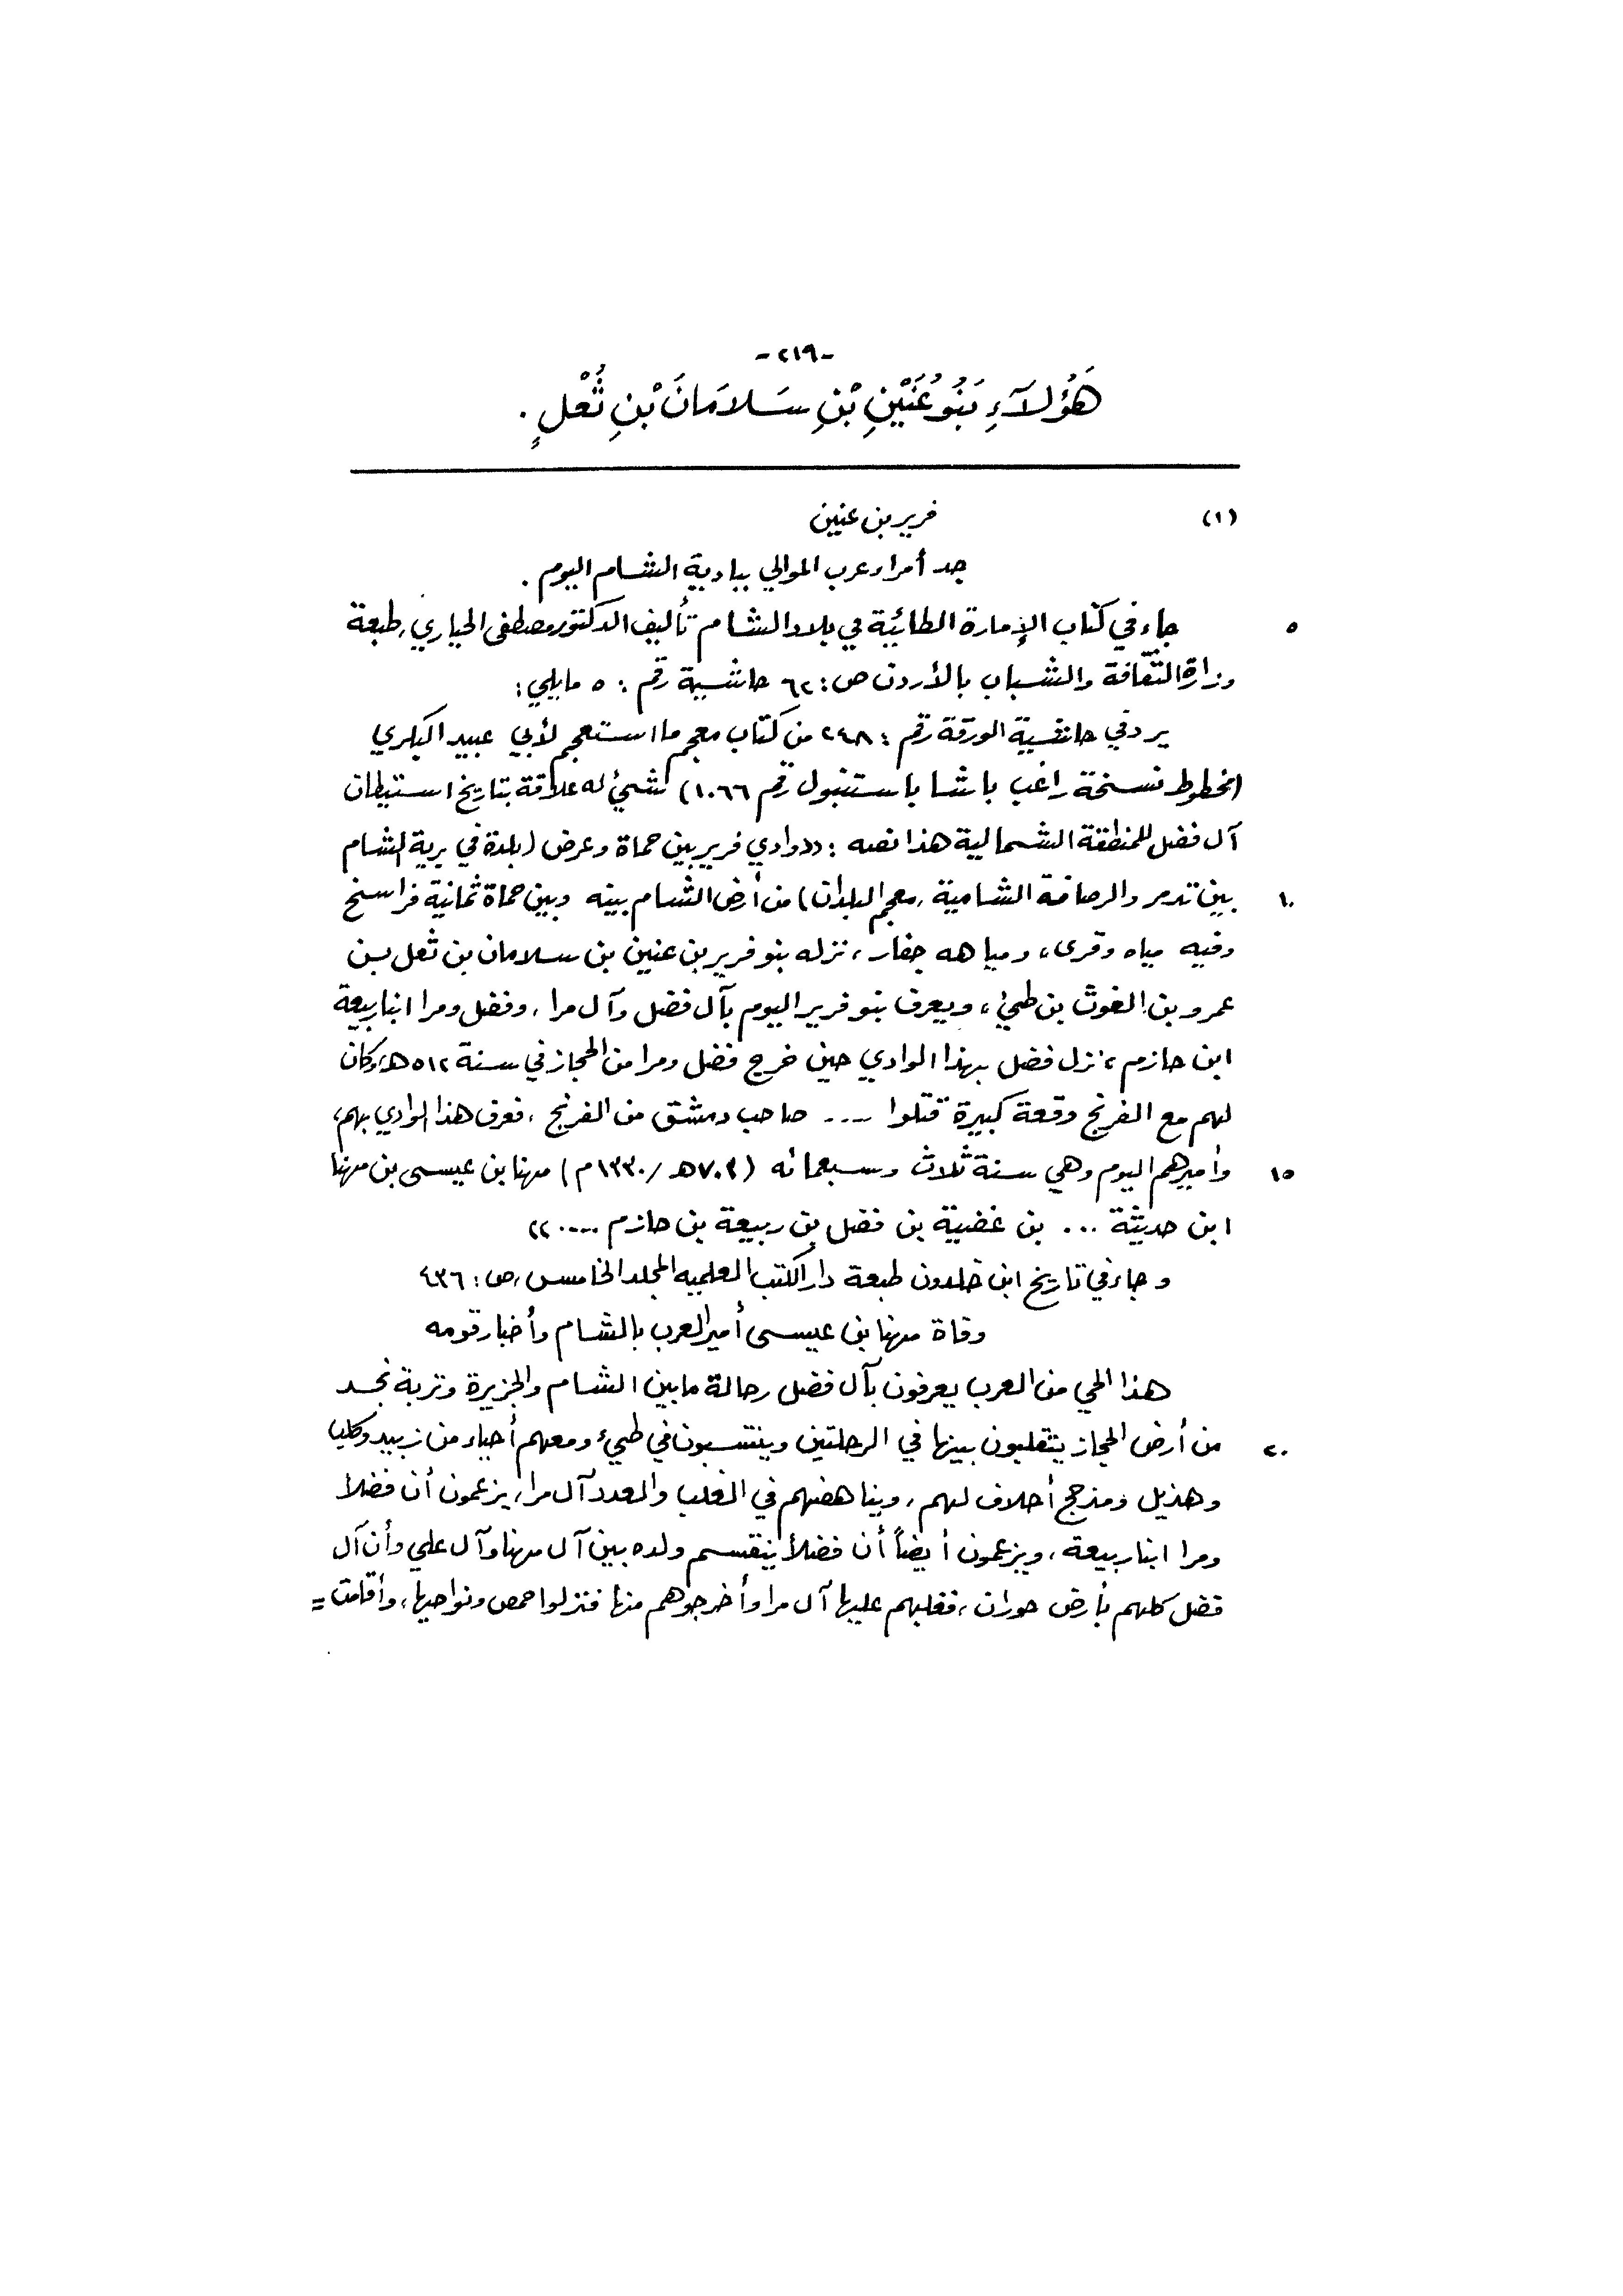 -٢١٩-
هَؤُلَآءِ بَنُو عُنَيْنِ بْنِ سَلَامَانَ بْنِ ثُعْلٍ .
(١) فرير بن عنين
جد أمراء عرب الموالي ببادية الشام اليوم .
٥ جاء في كتاب الإمارة الطائية في بلاد الشام تأليف الدكتور مصطفى الحياري، طبعة
وزارة الثقافة والشباب بالأردن ص: ٦٢ حاشية رقم : ٥ مايلي:
يرد في حاشية الورقة رقم : ٢٤٨ من كتاب معجم ما استعجم لأبي عبيد البكري
(مخطوط نسخة راغب باشا باستنبول رقم ١٠٦٦) شيئ له علاقة بتاريخ استيطان
آل فضل للمنطقة الشمالية هذا نصه : ((وادي فرير بين حماة وعرض (بلدة في برية الشام
١٠ بين تدمر والرصافة الشامية، معجم البلدان) من أرض الشام بينه وبين حماة ثمانية فراسخ
وفيه مياه وقرى، ومياهه جفار، نزله بنو فرير بن عنين بن سلامان بن ثعل بن
عمرو بن الغوث بن طيئ، ويعرف بنو فرير اليوم بآل فضل وآل مرا، وفضل ومرا ابنا ربيعة
ابن حازم، نزل فضل بهذا الوادي حين خرج فضل ومرا من الحجاز في سنة ٥١٢هـ، وكان
لهم مع الفرنج وقعة كبيرة قتلوا .... صاحب دمشق من الفرنج ، فعرف هذا الوادي بهم،
١٥ وأميرهم اليوم وهي سنة ثلاث وسبعمائه (٧٠٣هـ /١٣٣٠م) مهنا بن عيسى بن مهنا
ابن حديثة ... بن غضية بن فضل بن ربيعة بن حازم ....))
وجاء في تاريخ ابن خلدون طبعة دار الكتب العلميه المجلد الخامس، ص: ٤٣٦
وفاة مهنا بن عيسى أمير العرب بالشام وأخبار قومه
هذا الحي من العرب يعرفون بآل فضل رحالة مابين الشام والجزيرة وتربة نجد
٢٠ من أرض الحجاز يتقلبون بينها في الرحلتين وينتسبون في طيء ومعهم أحياء من زبيد وكلب
وهذيل ومذحج أحلاف لهم، ويناهضهم في الغلب والعدد آل مرا، يزعمون أن فضلاً
ومرا ابنا ربيعة، ويزعمون أيضاً أن فضلاً ينقسم ولده بين آل مهنا وآل علي وأن آل
فضل كلهم بأرض حوران، فغلبهم عليها آل مرا وأخرجوهم منها فنزلوا حمص ونواحيها، وأقامت =